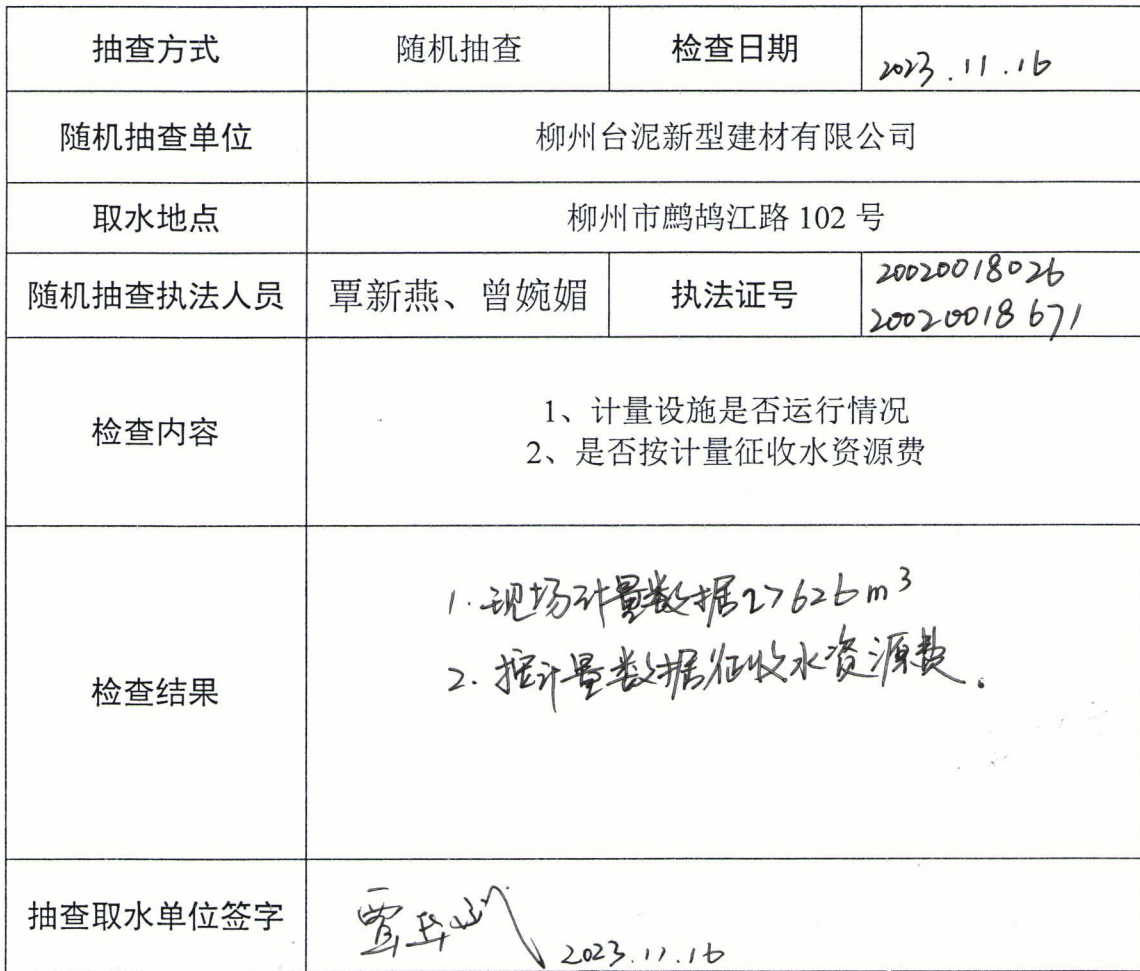 抽查方式 随机抽查 检查日期 2023.11.16
随机抽查单位 柳州台泥新型建材有限公司
取水地点 柳州市鹧鸪江路 102 号
随机抽查执法人员 覃新燕、曾婉媚 执法证号 20020018026
20020018671
检查内容
1、计量设施是否运行情况
2、是否按计量征收水资源费
检查结果
1.现场计量数据27626m³
2.按计量数据征收水资源费。
抽查取水单位签字 2023.11.16